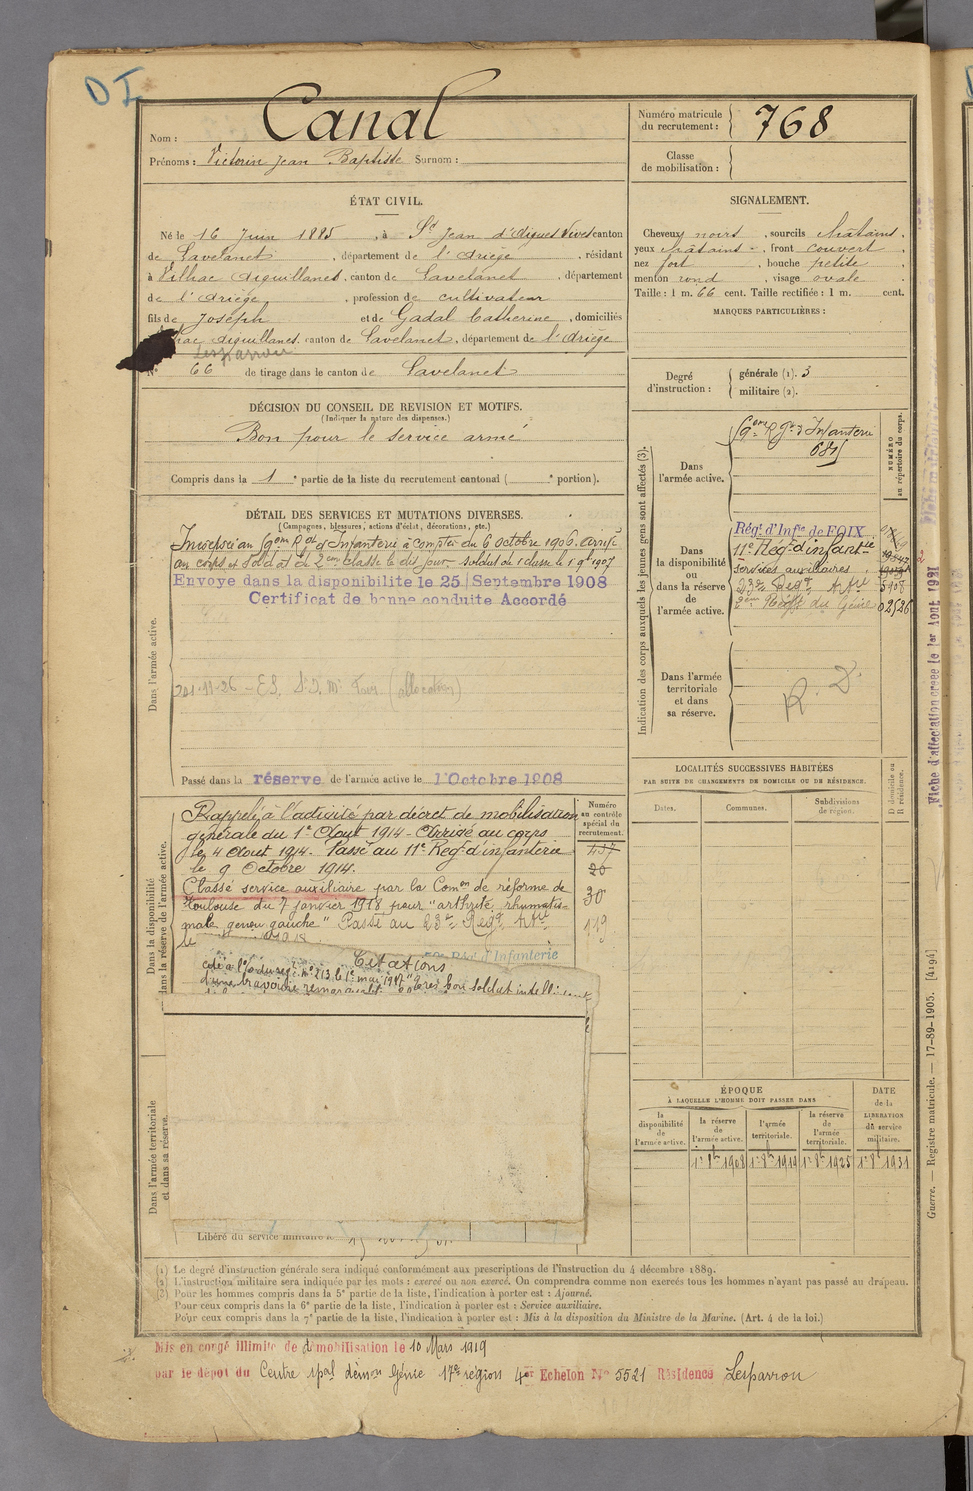 DI
Nom : Canal
Prénoms : Victorin Jean Baptiste Surnom :
Numéro matricule du recrutement : 768
Classe de mobilisation :
ÉTAT CIVIL.
Né le 16 Juin 1885, à St Jean d'Aigues Vives canton
de Lavelanet, département de l'Ariège, résidant
à Lilhac Aiguillanes, canton de Lavelanet, département
de l'Ariège, profession de cultivateur
fils de Joseph et de Gadal Catherine, domiciliés
Aiguillanes canton de Lavelanet, département de l'Ariège
Lesparrou
N° 66 de tirage dans le canton de Lavelanet
SIGNALEMENT.
Cheveux noirs, sourcils châtains,
yeux châtains, front couvert,
nez fort, bouche petite,
menton rond, visage ovale
Taille : 1 m. 66 cent. Taille rectifiée : 1 m. cent.
MARQUES PARTICULIÈRES :
Degré d'instruction : générale (1). 3
militaire (2).
DÉCISION DU CONSEIL DE REVISION ET MOTIFS.
(Indiquer la nature des dispenses.)
Bon pour le service armé
Compris dans la 1e partie de la liste du recrutement cantonal ( e portion).
DÉTAIL DES SERVICES ET MUTATIONS DIVERSES.
(Campagnes, blessures, actions d'éclat, décorations, etc.)
Dans l'armée active.
Incorporé au 9em Rgt d'Infanterie à compter du 6 octobre 1906. Arrivé
au corps et soldat de 2eme classe le dit jour. Soldat de 1e classe le 1 9 1907
Envoyé dans la disponibilite le 25 Septembre 1908
Certificat de bonne conduite Accordé
(allocation)
Passé dans la réserve de l'armée active le 1 Octobre 1908
Dans la disponibilité
dans la réserve de l'armée active.
Numéro au contrôle spécial du recrutement.
Rappelé à l'activité par décret de mobilisation
générale du 1er Août 1914 - Arrivé au corps
le 4 Août 1914. Passé au 11e Regt d'infanterie
le 9 Octobre 1914.
Classé service auxiliaire par la Comon de réforme de
Toulouse du 7 janvier 1918 pour "arthrite rhumatis-
male genou gauche" Passé au 23e Regt Artie
le
20
30
119
d'Infanterie
Citations
cité à l'o/ du regt n° 213 le 1e mai 1917 "
d'une bravoure remarquable très bon soldat intelligent
Dans l'armée territoriale
et dans sa réserve.
Libéré du service militaire le
Indication des corps auxquels les jeunes gens sont affectés (3).
NUMÉRO au répertoire du corps.
Dans l'armée active.
9em Rgt d'Infanterie
Dans la disponibilité ou dans la réserve de l'armée active.
Régt d'Infie de FOIX
11e Régt d'infantie
services auxiliaires
23e Regt Artie
2eme Régt du Génie 02526
5908
Dans l'armée territoriale et dans sa réserve.
R. D.
LOCALITÉS SUCCESSIVES HABITÉES
PAR SUITE DE CHANGEMENTS DE DOMICILE OU DE RÉSIDENCE.
Dates.
Communes.
Subdivisions de région.
D domicile ou R résidence.
ÉPOQUE
À LAQUELLE L'HOMME DOIT PASSER DANS
la disponibilité de l'armée active.
la réserve de l'armée active.
l'armée territoriale.
la réserve de l'armée territoriale.
DATE de la LIBÉRATION du service militaire.
1er 8bre 1908 1er 8bre 1919 1er 8bre 1925 1er 8bre 1931
(1) Le degré d'instruction générale sera indiqué conformément aux prescriptions de l'instruction du 4 décembre 1889.
(2) L'instruction militaire sera indiquée par les mots : exercé ou non exercé. On comprendra comme non exercés tous les hommes n'ayant pas passé au drapeau.
(3) Pour les hommes compris dans la 5e partie de la liste, l'indication à porter est : Ajourné.
Pour ceux compris dans la 6e partie de la liste, l'indication à porter est : Service auxiliaire.
Pour ceux compris dans la 7e partie de la liste, l'indication à porter est : Mis à la disposition du Ministre de la Marine. (Art. 4 de la loi.)
Mis en congé illimité de démobilisation le 10 Mars 1919
par le dépot du Centre spal démon Génie 17e région 4er Echelon No 5521 Résidence Lesparrou
Guerre. — Registre matricule. — 17-89-1905. [4194]
Fiche d'affectation créée le 1er Aout 1921